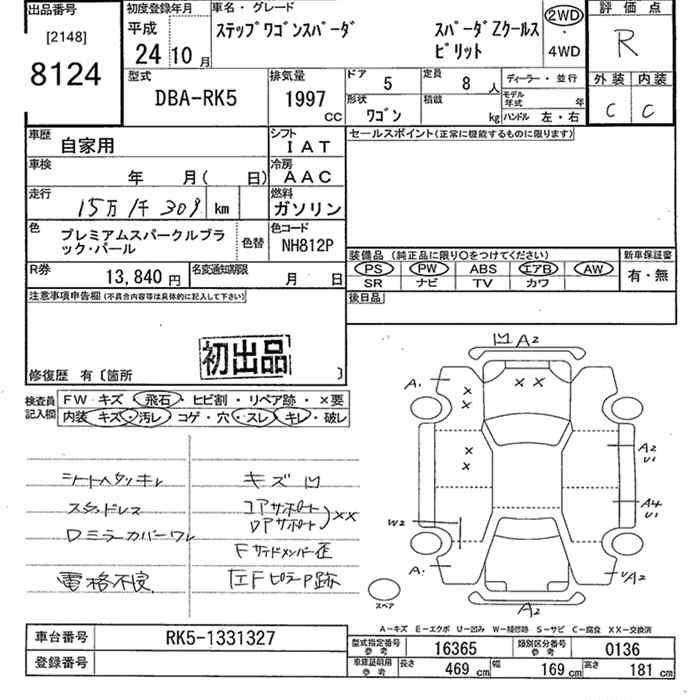 出品番号
[2148]
8124
初度登録年月
平成
24年10月
車名・グレード
ステップワゴンスパーダ スパーダZクールス
ピリット
2WD
・
4WD
評価点
R
外装 内装
C C
型式
DBA-RK5
排気量
1997
CC
ドア 5
定員 8人
形状 ワゴン
積載 kg
ディーラー・並行
モデル年式 年
ハンドル 左・右
車歴 自家用
シフト IAT
車検 年 月( 日)
冷房 AAC
走行 15万1千309 km
燃料 ガソリン
色 プレミアムスパークルブラ
ック・パール
色替
色コード NH812P
R券 13,840 円
名変通知期限 月 日
セールスポイント(正常に機能するものに限ります)
装備品 (純正品に限り○をつけてください)
新車保証書
PS PW ABS エアB AW
SR ナビ TV カワ
有・無
後日品
注意事項申告欄(不具合内容等は具体的に記入して下さい)
初出品
修復歴 有〔箇所 〕
検査員
記入欄
FW キズ・飛石・ヒビ割・リペア跡・×要
内装・キズ・汚レ・コゲ・穴・スレ・キレ・破レ
シートヘタリキレ
スタッドレス
Dミラーカバーワレ
電格不良
キズ凹
コアサポート
ロアサポート ××
Fサイドメンバー歪
右FピラーP跡
凹 A2
A1
× ×
×
×
×
×
A2
U1
A4
U1
W2
A1
U/A2
A2
スペア
A-キズ E-エクボ U-凹み W-補修跡 S-サビ C-腐食 XX-交換済
車台番号 RK5-1331327
登録番号
型式指定番号
参考
16365
類別区分番号
参考
0136
車庫証明用
参考
長さ 469 cm
幅 169 cm
高さ 181 cm